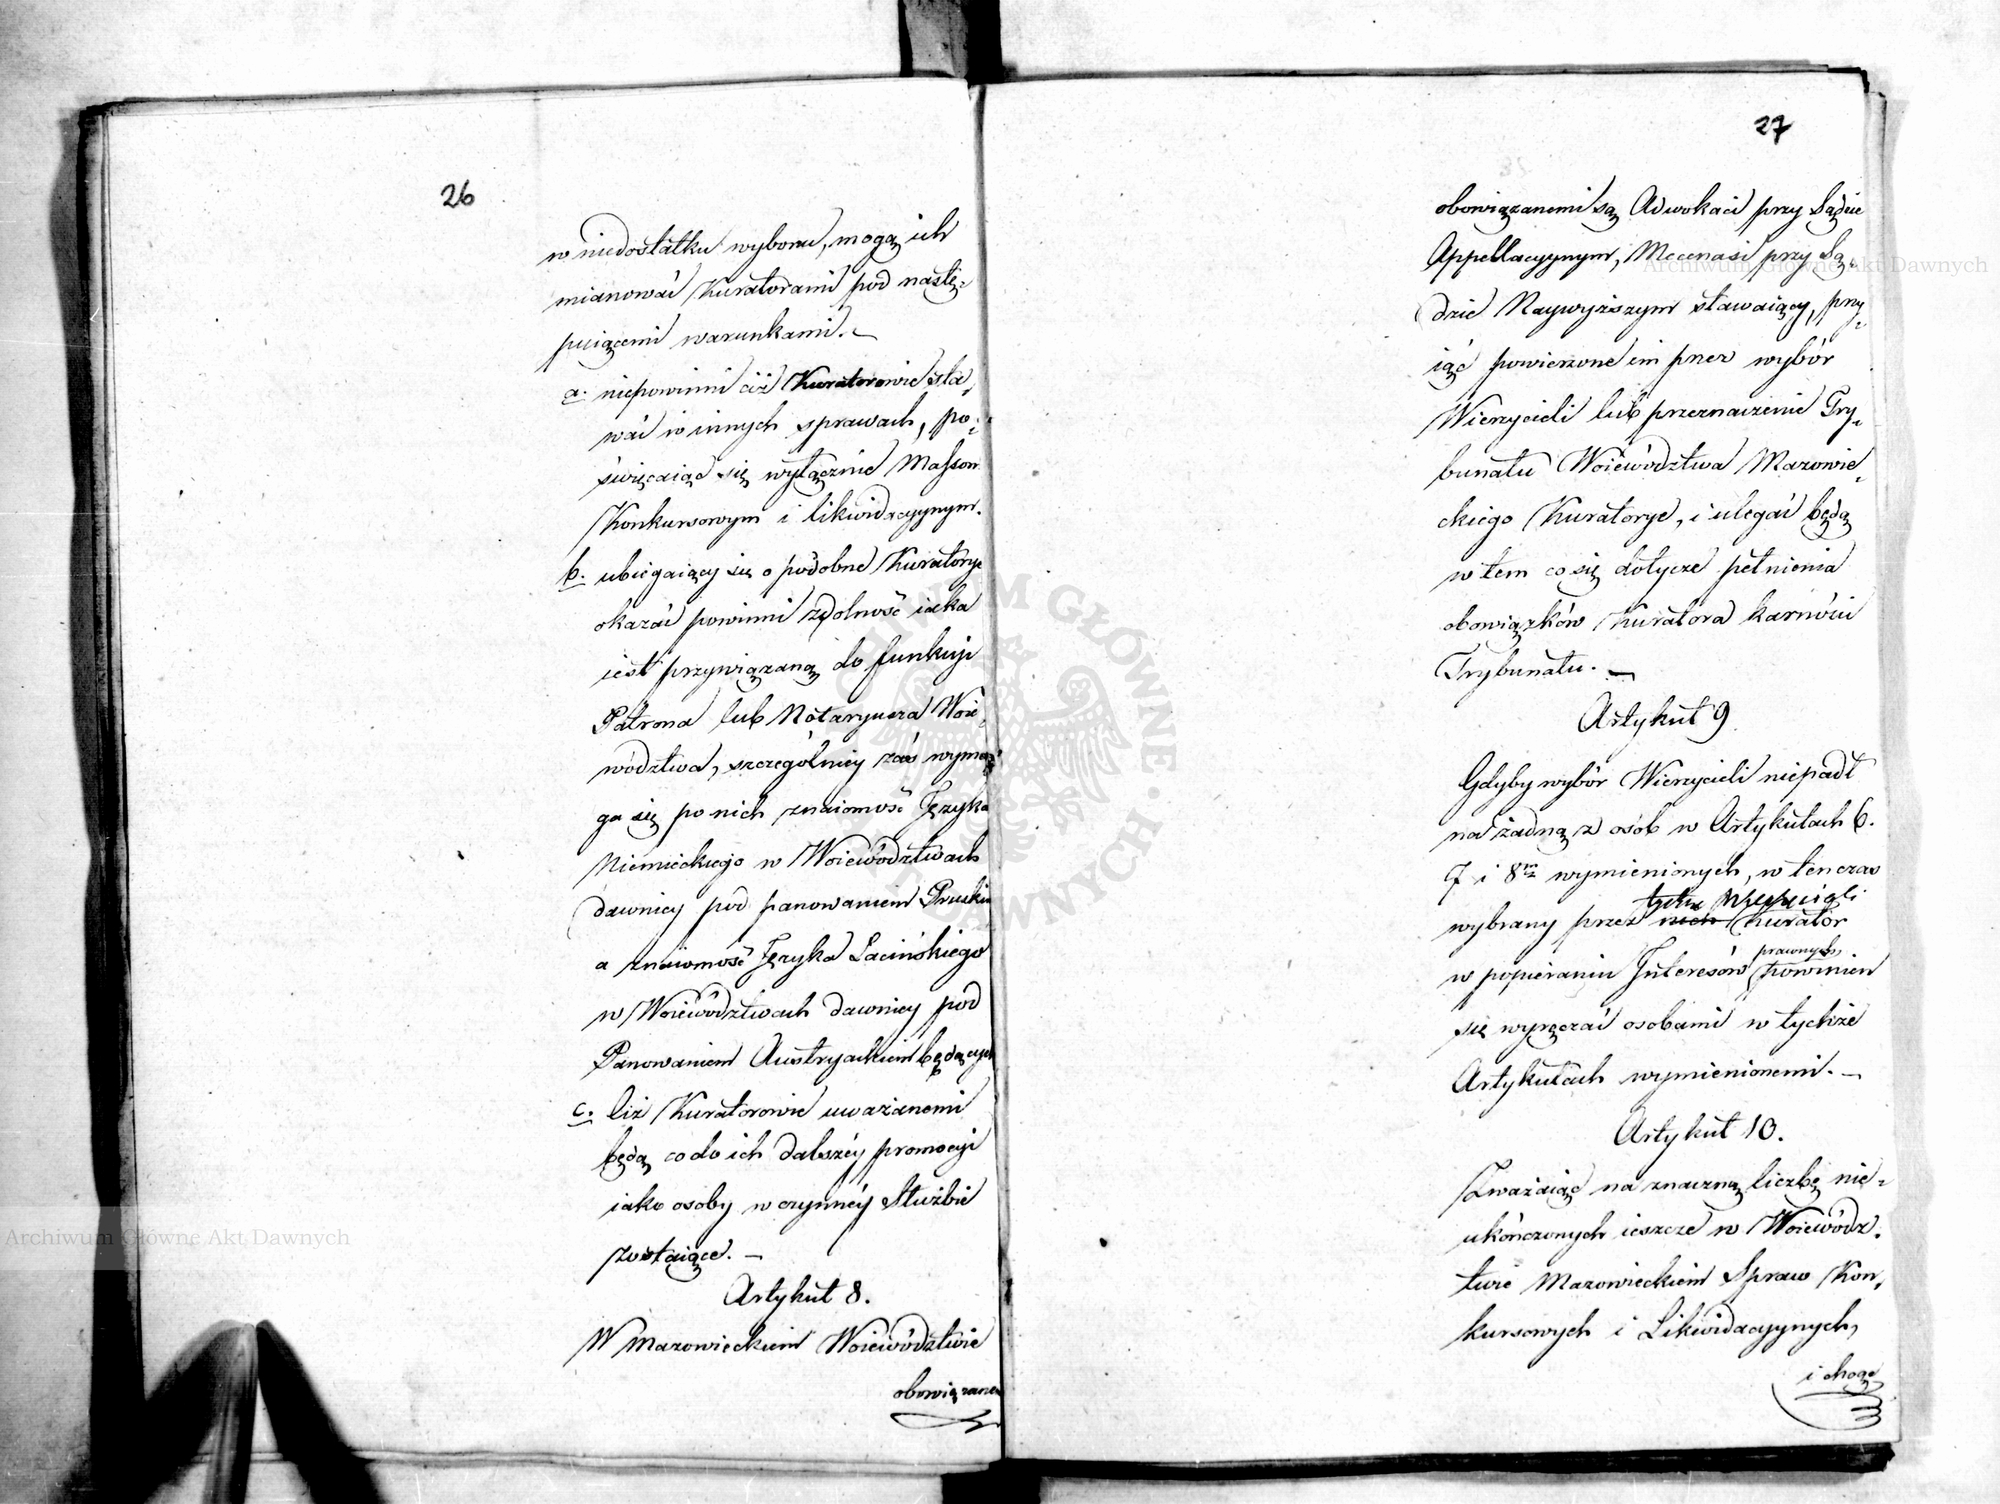 26
w niedostatku wyboru, mogą ich
mianować Kuratorami pod nastę-
puiącemi warunkami. —
a. niepowinni ciż Kuratorowie sta-
wać w innych sprawach, po-
święcaiąc się wyłącznie Massom
Konkursowym i likwidacyynym.
b. ubiegaiący się o podobne Kuratorye
okazać powinni zdolność iaka
iest przywiązaną do funkcyi
Patrona lub Notaryusza Woie-
wództwa, szczególniey zaś wyma-
ga się po nich znaiomość Języka
Niemieckiego w Woiewództwach
dawniey pod panowaniem Pruskim
a znaiomość Języka Łacińskiego
w Woiewództwach dawniey pod
Panowaniem Austryackiem będących
c. Ciż Kuratorowie uważanemi
będą co do ich dalszéy promocyi
iako osoby w czynnéy Służbie
zostaiące. —
Artykuł 8.
W Mazowieckiem Woiewództwie
obowiązanemi
27
obowiązanemi są Adwokaci przy Sądzie
Appellacyynym, Mecenasi przy Są-
dzie Naywyższym stawaiący, przy-
iąć powierzone im przez wybór
Wierzycieli lub przeznaczenie Try-
bunału Woiewództwa Mazowie-
ckiego Kuratorye, i ulegać będą
w tem co się dotycze pełnienia
obowiązków Kuratora karności
Trybunału. —
Artykuł 9
Gdyby wybór Wierzycieli niepadł
na żadną z osób w Artykułach 6.
7 i 8m wymienionych, w ten czas
tychże Wierzycieli
wybrany przez nich Kurator
prawnych
w popieraniu Interesów powinien
się wyręczać osobami w tychże
Artykułach wymienionemi. —
Artykuł 10.
Zważaiąc na znaczną liczbę nie-
ukończonych ieszcze w Woiewódz-
twie Mazowieckiem Spraw Kon-
kursowych i Likwidacyynych,
i chcąc
Archiwum Główne Akt Dawnych
Archiwum Główne Akt Dawnych